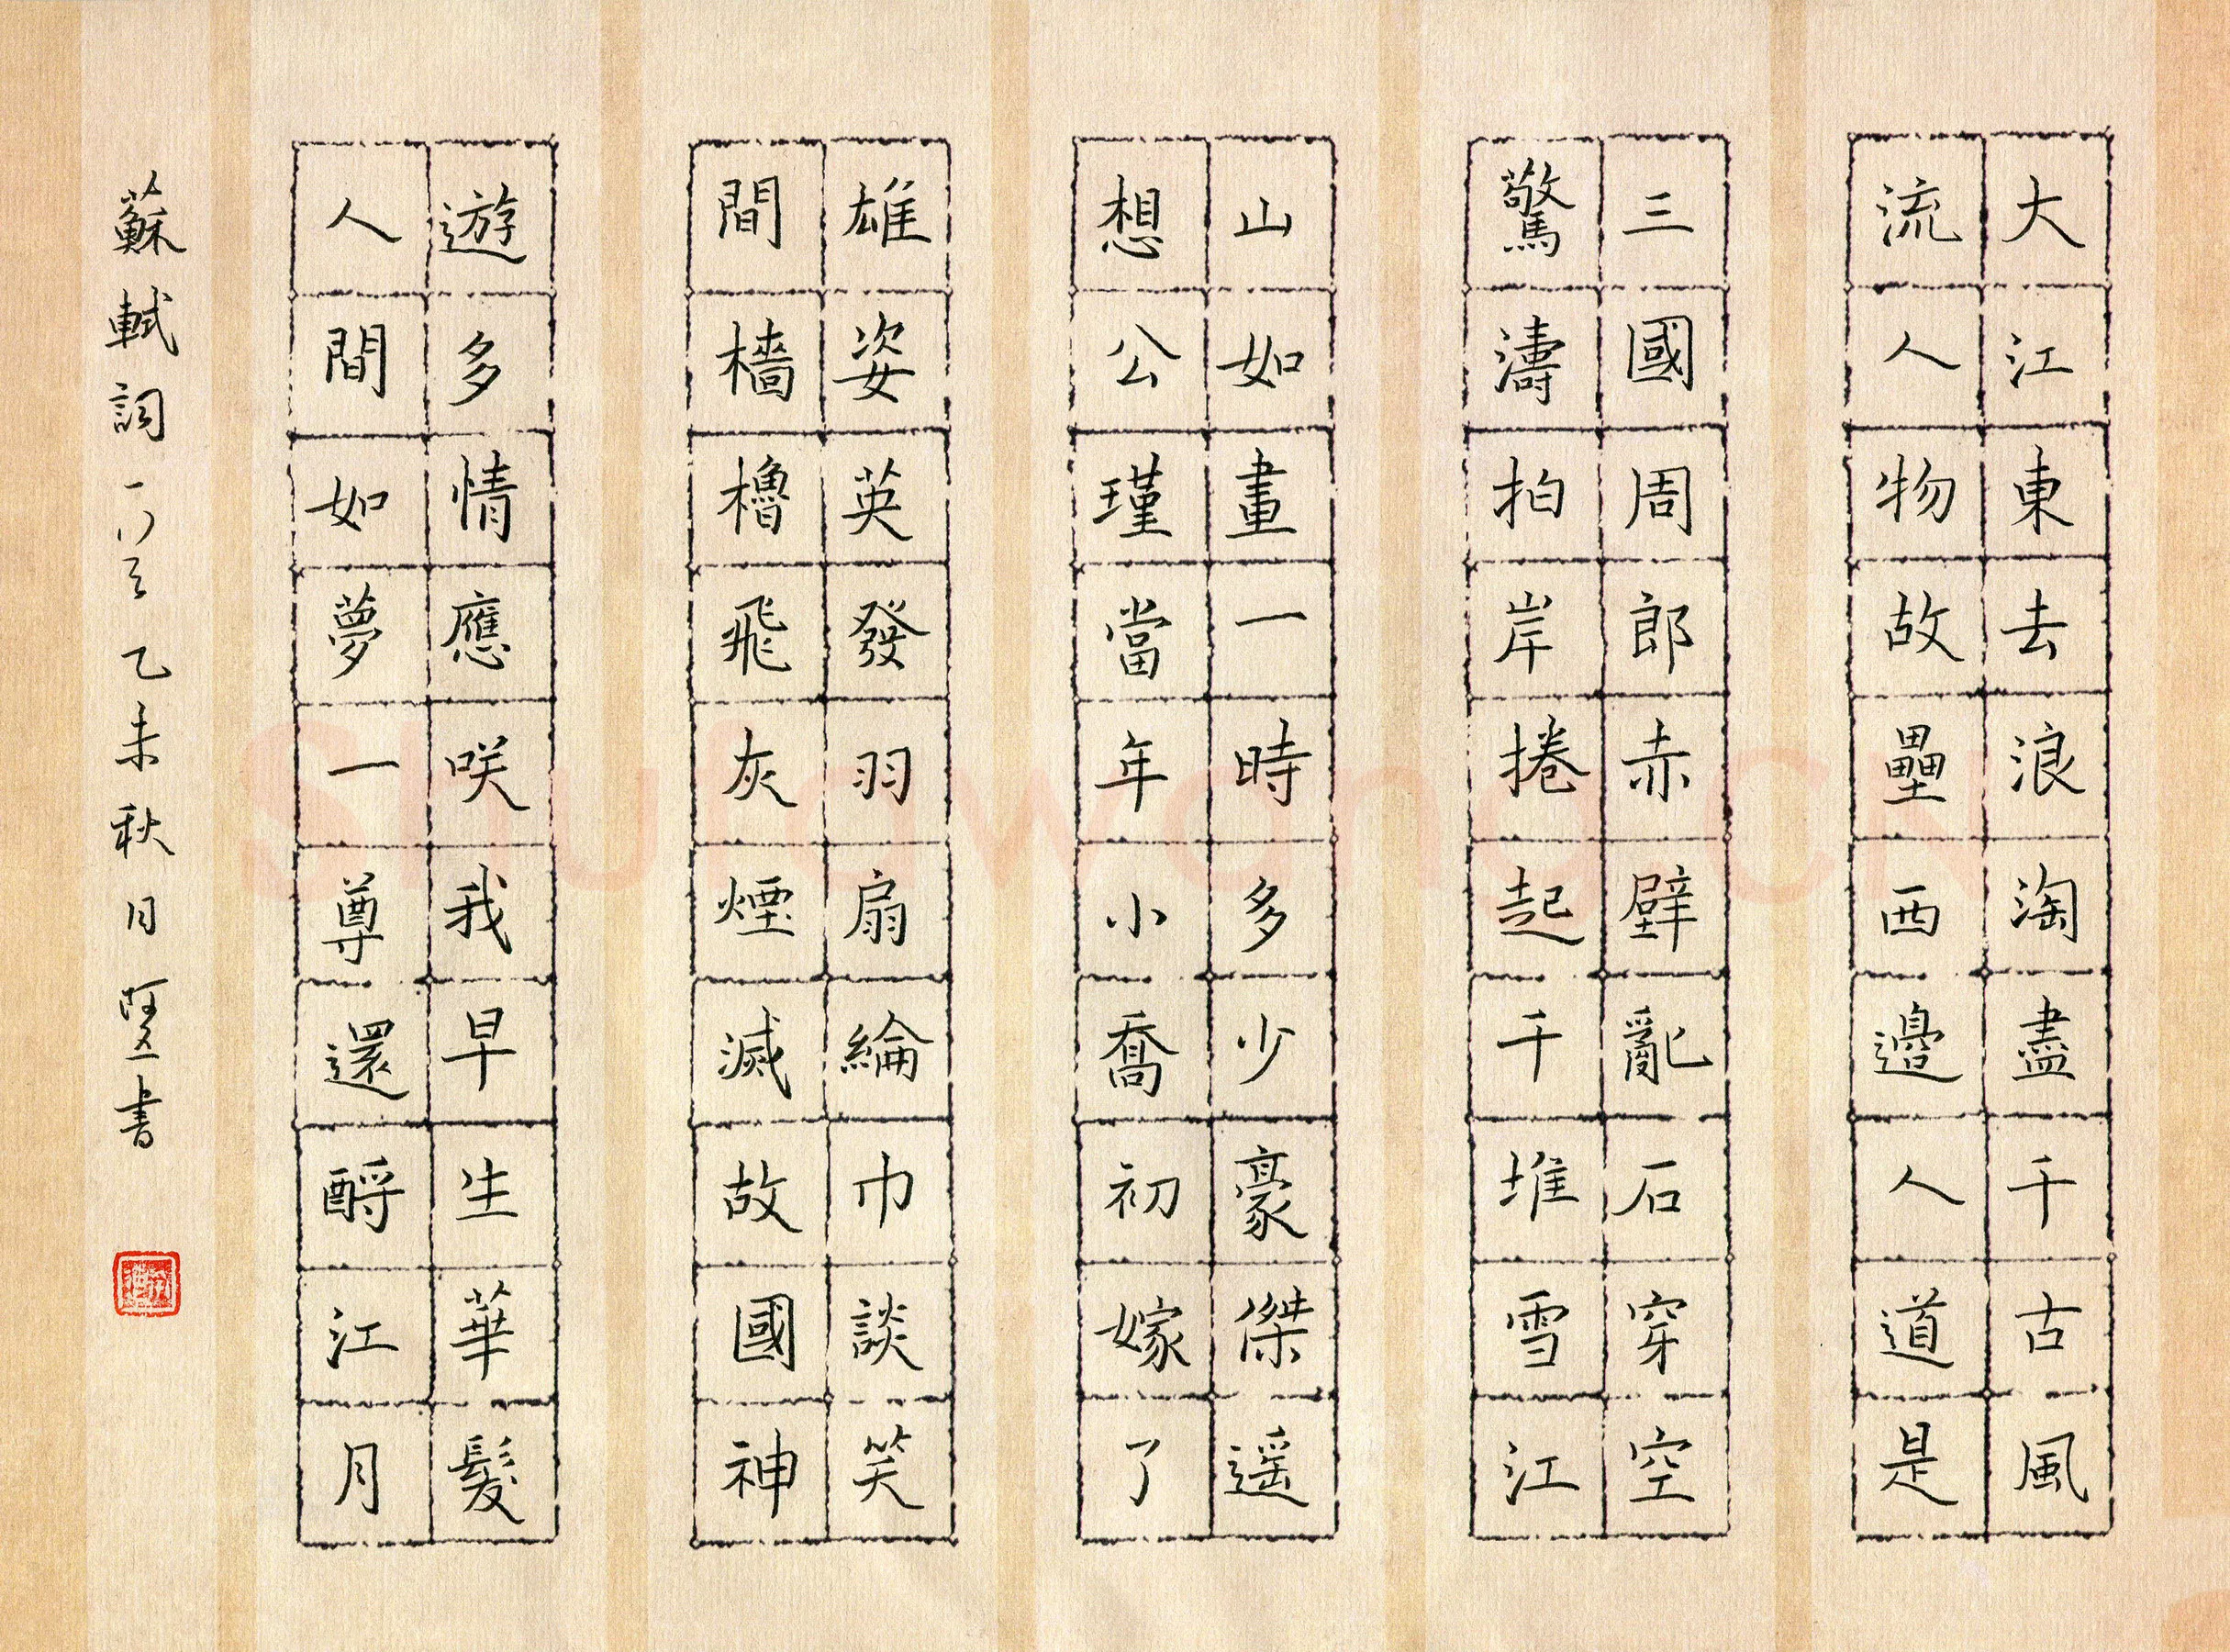 大江東去浪淘盡千古風
流人物故壘西邊人道是
三國周郎赤壁亂石穿空
驚濤拍岸捲起千堆雪江
山如畫一時多少豪傑遥
想公瑾當年小喬初嫁了
雄姿英發羽扇綸巾談笑
間檣櫓飛灰煙滅故國神
遊多情應咲我早生華髮
人間如夢一尊還酹江月
蘇軾詞一首 乙未秋月 書